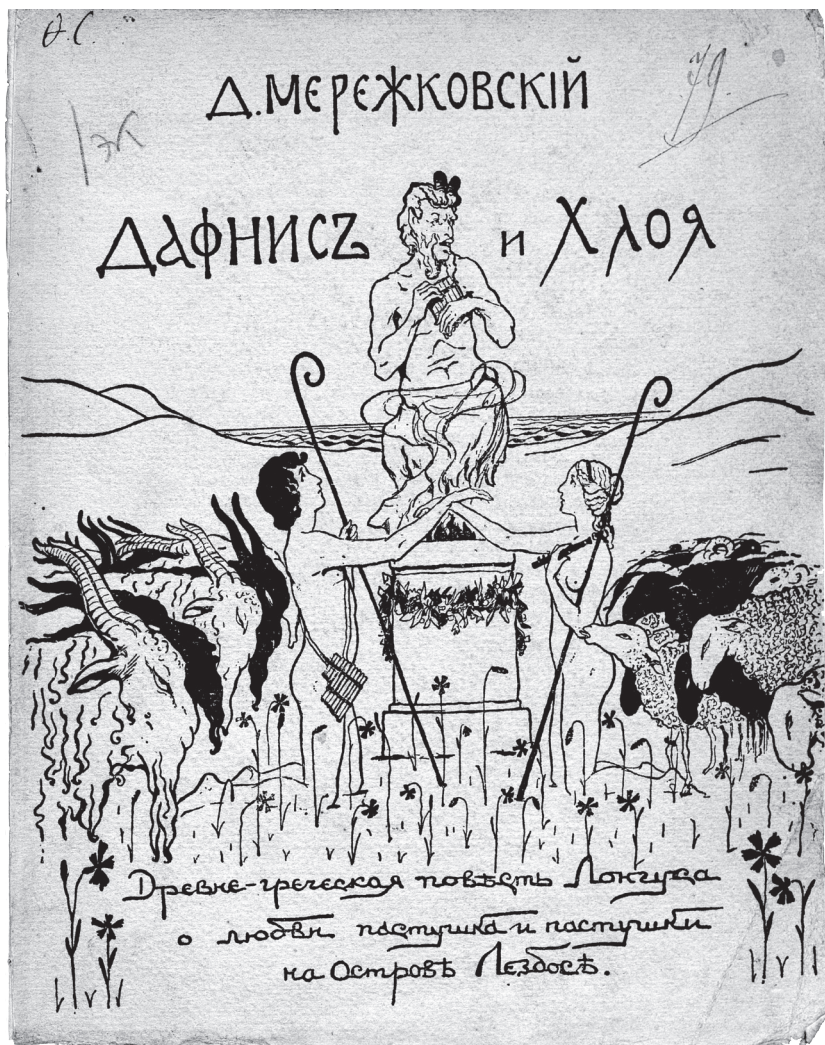 Ѳ.С.
Д. МЕРЕЖКОВСКІЙ
79.
ЭК
ДАФНИСЪ и ХЛОЯ
Древне-греческая повѣсть Лонгуса
о любви пастушка и пастушки
на Островѣ Лезбосѣ.